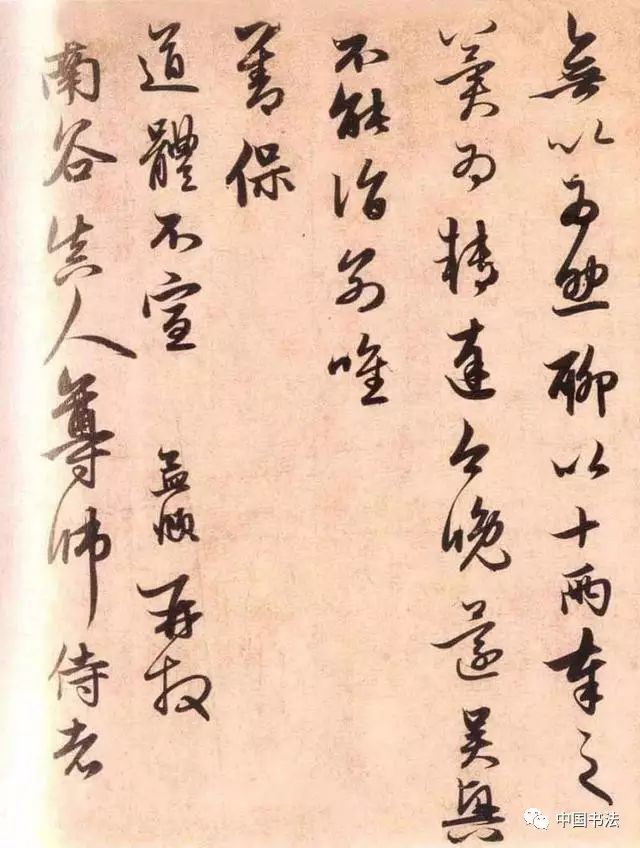 無以聊以十兩奉之
冀為轉達今晚還吳興
不能詣前唯
善保
道體不宣 孟頫再拜
南谷真人尊師侍者
中国书法